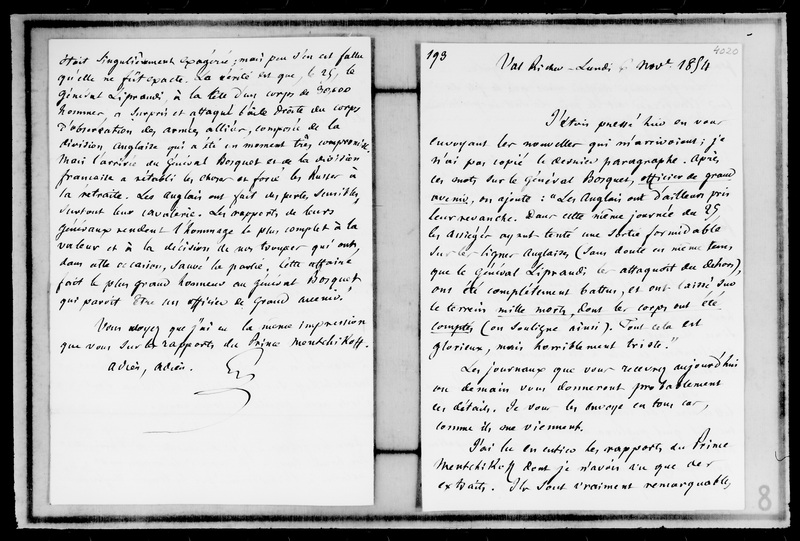 était singulièrement exagérée; mais peu s'en est fallu
qu'elle ne fût exacte. La vérité est que, le 25, le
Général Liprandi, à la tête d'un corps de 30,000
hommes, a surpris et attaqué l'aîle droite du corps
d'observation des armées alliées, composée de la
division anglaise qui a été un moment très compromise.
Mais l'arrivée du Général Bosquet et de la division
française a rétabli les choses et forcé les Russes à
la retraite. Les Anglais ont fait des pertes sensibles,
surtout leur cavalerie. Les rapports de leurs
généraux rendent l'hommage le plus complet à la
valeur et à la décision de nos troupes qui ont,
dans cette occasion, sauvé la partie. Cette affaire
fait le plus grand honneur au Général Bosquet
qui paroît être un officier de grand avenir."
Vous voyez que j'ai eu la même impression
que vous sur les rapports du Prince Mentchikoff.
Adieu, adieu.
193
4020
Val Richer - Lundi 6 Novre 1854
J'étois pressé hier en vous
envoyant les nouvelles qui m'arrivoient; je
n'ai pas copié le dernier paragraphe. Après
ces mots sur le Général Bosquet, officier de grand
avenir, on ajoute: "Les Anglais ont d'ailleurs pris
leur revanche. Dans cette même journée du 25
les assiégés ayant tenté une sortie formidable
sur les lignes Anglaises (sans doute en même tems
que le Général Liprandi les attaquoit du dehors),
ont été complètement battus, et ont laissé sur
le terrein mille morts, dont les corps ont été
comptés (on souligne ainsi). Tout cela est
glorieux, mais horriblement triste."
Les journaux que vous recevrez aujourd'hui
ou demain vous donneront probablement
ces détails. Je vous les envoye en tous cas,
comme ils me viennent.
J'ai lu en entier les rapports du Prince
Mentchikoff dont je n'avois vu que des
extraits. Ils sont vraiment remarquables
8